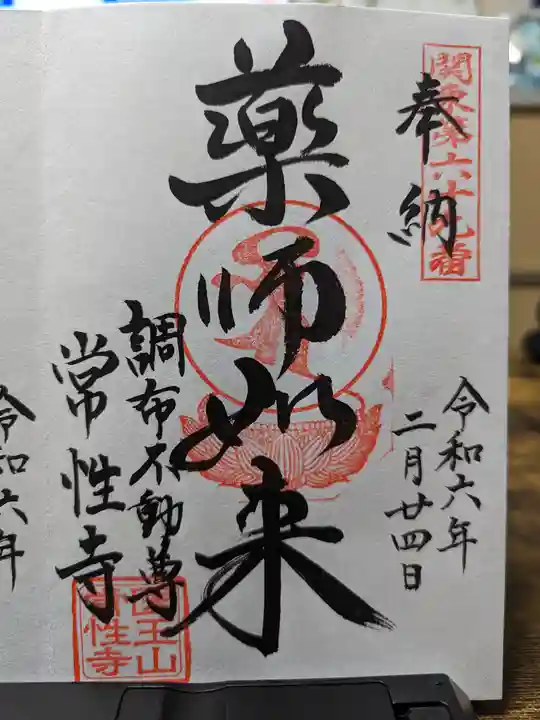 奉納
関東第六十九番
薬師如来
令和六年
二月廿四日
調布不動尊
常性寺
医王山
常性寺
令和六年